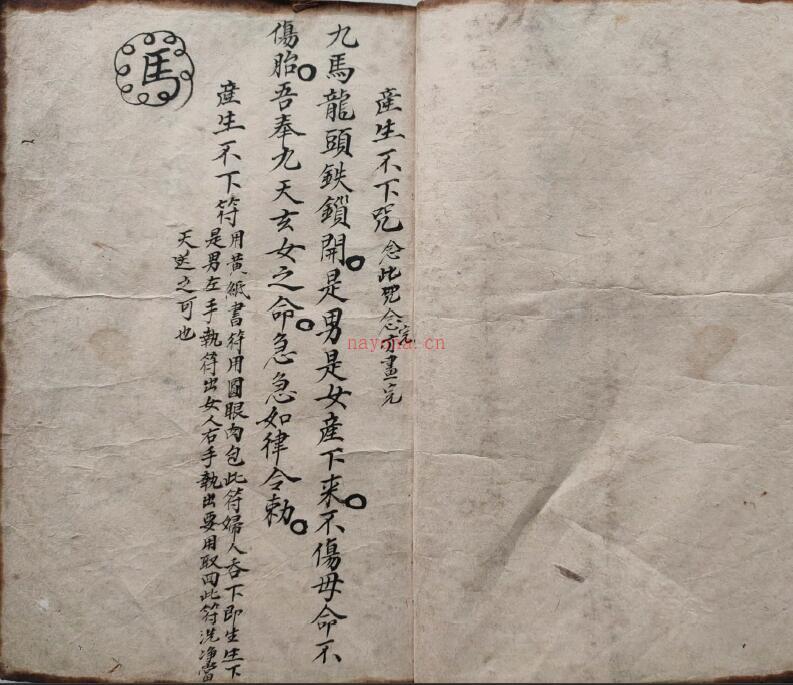 產生不下咒 念此咒念完方畫完
九馬龍頭鉄鎖開是男是女產下来不傷母命不
傷胎吾奉九天玄女之命急急如律令勅
產生不下符 用黃紙書符用圓眼肉包此符婦人吞下即生生下
是男左手執符出女人右手執出要用取回此符洗净當
天送之可也
馬
nayona.cn